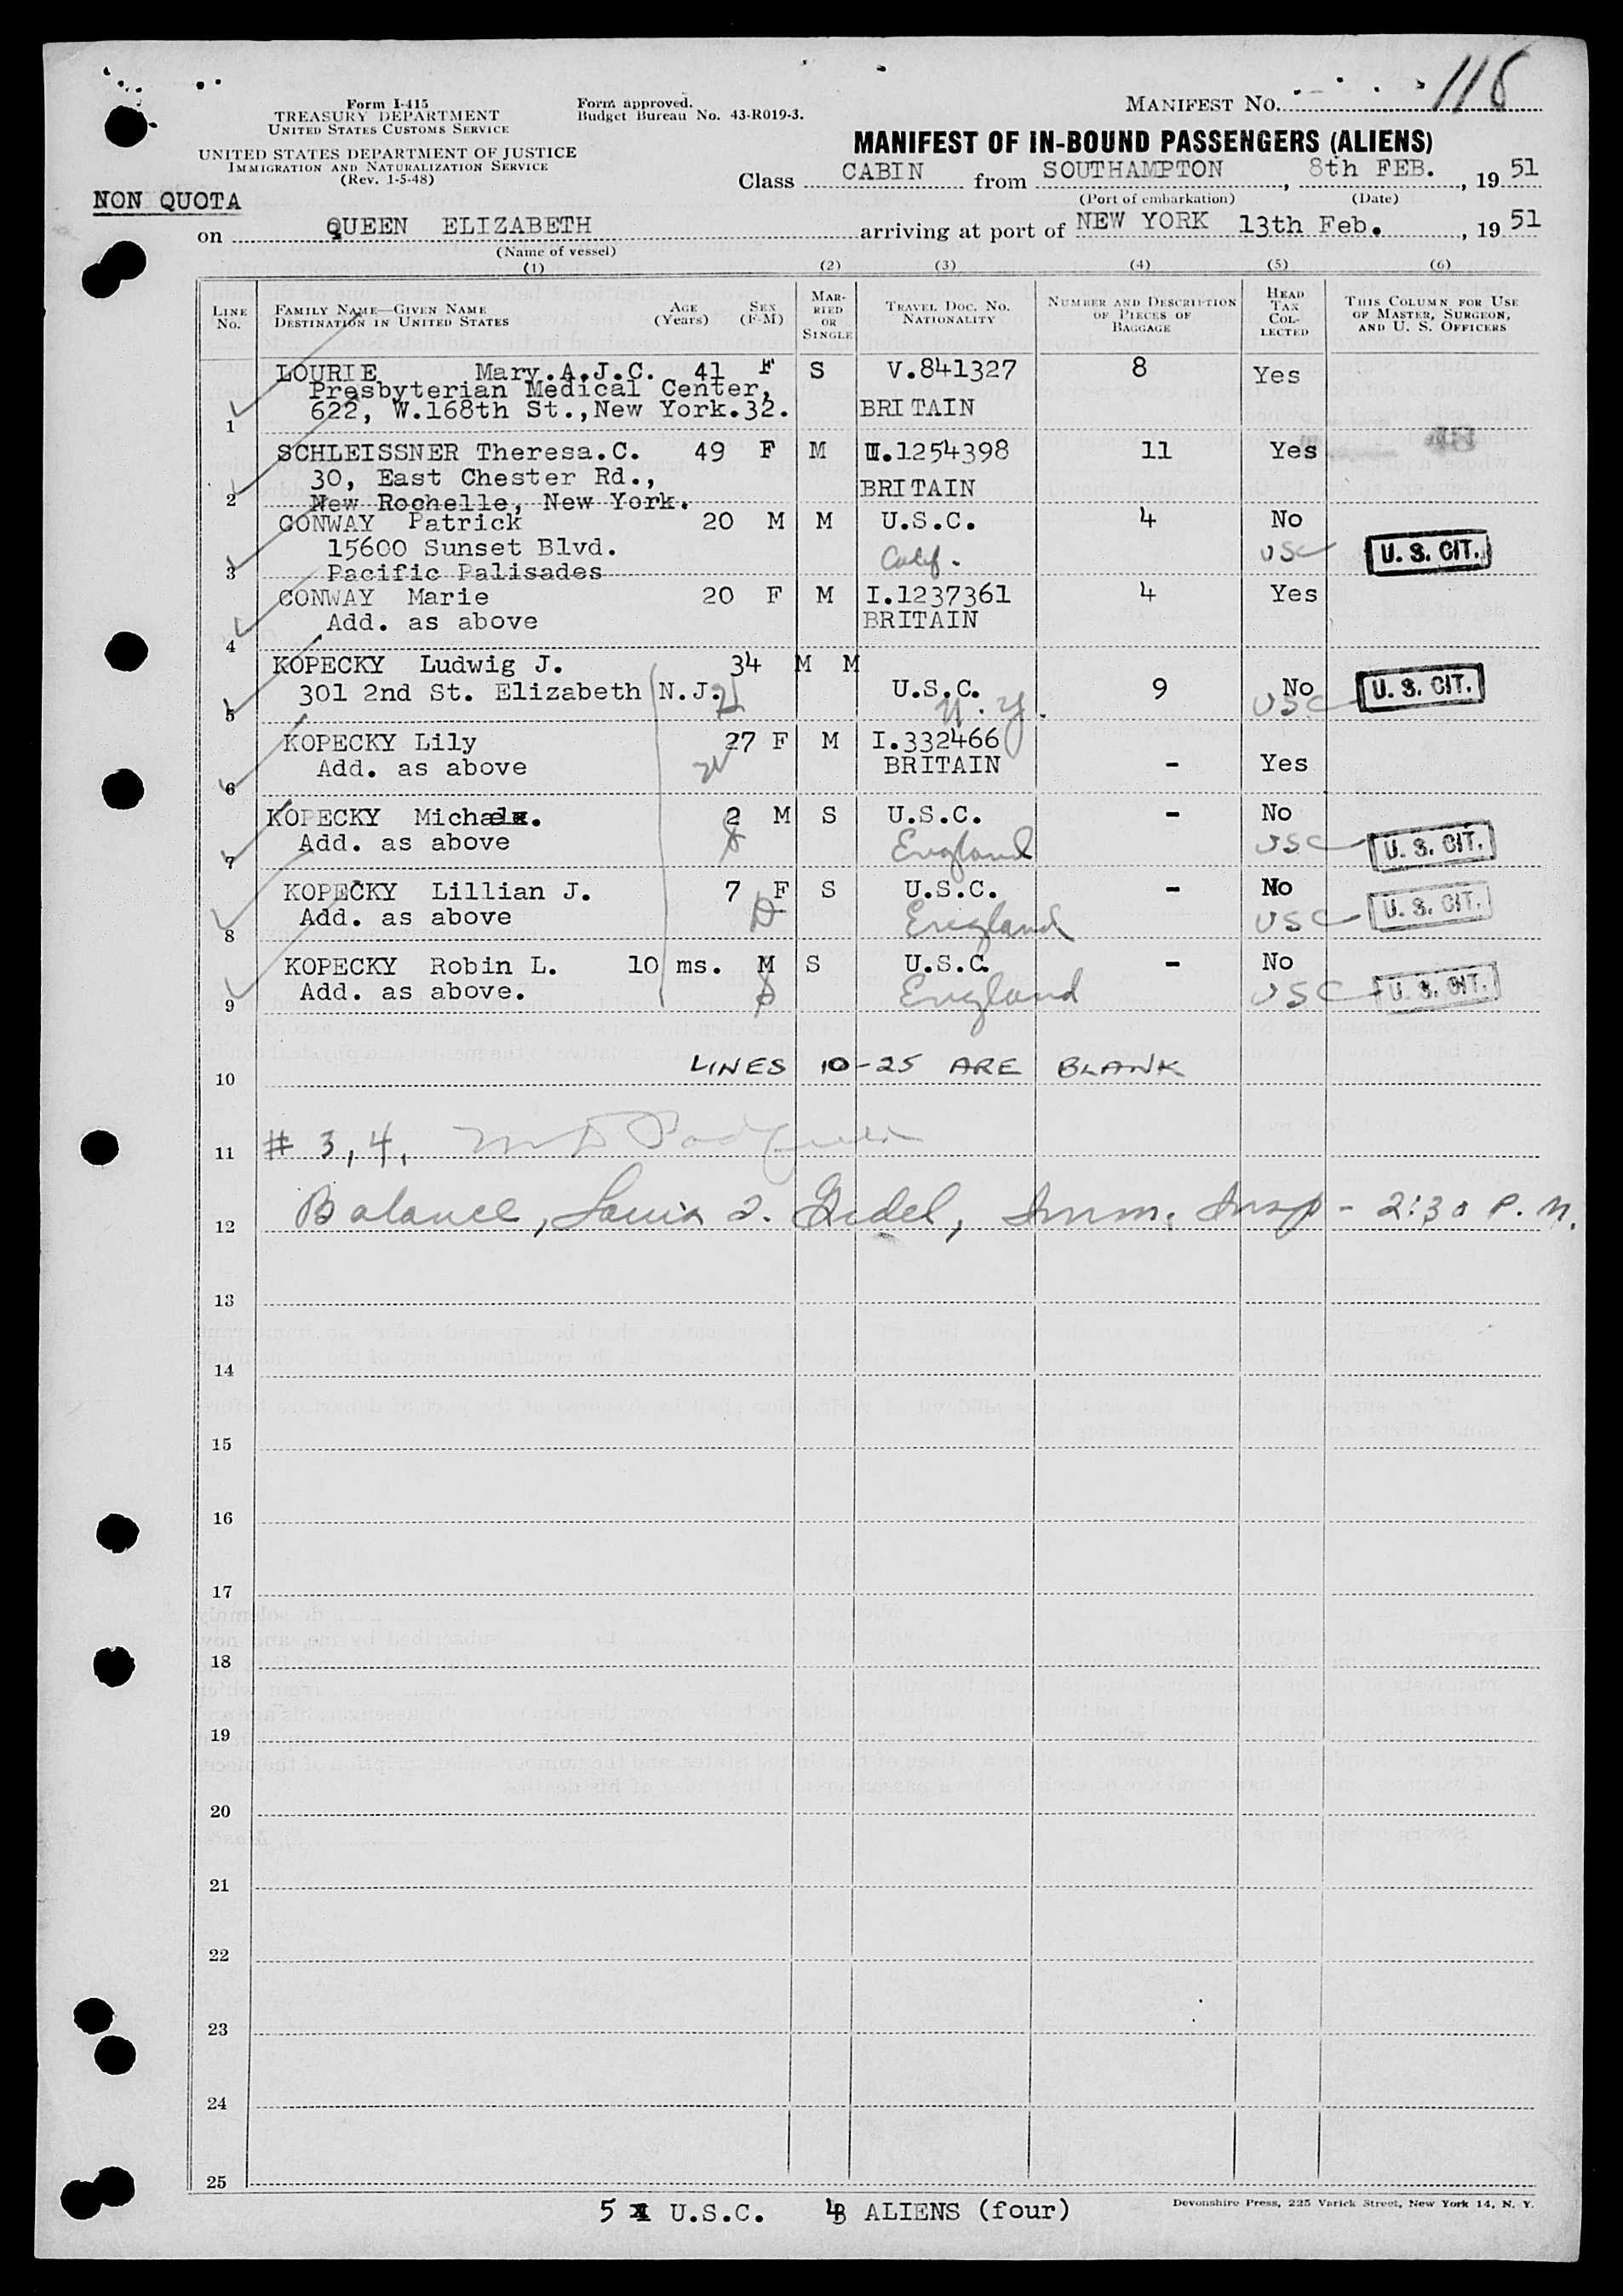 MANIFEST NO. 118
Form I-415
TREASURY DEPARTMENT
UNITED STATES CUSTOMS SERVICE
Form approved.
Budget Bureau No. 43-R019-3.
UNITED STATES DEPARTMENT OF JUSTICE
IMMIGRATION AND NATURALIZATION SERVICE
(Rev. 1-5-48)
MANIFEST OF IN-BOUND PASSENGERS (ALIENS)
NON QUOTA
Class CABIN from SOUTHAMPTON, 8th FEB., 19 51
(Port of embarkation) (Date)
on QUEEN ELIZABETH arriving at port of NEW YORK 13th Feb., 19 51
(Name of vessel)
(1) (2) (3) (4) (5) (6)
LINE No.
FAMILY NAME—GIVEN NAME
DESTINATION IN UNITED STATES
AGE (Years)
SEX (F-M)
MARRIED OR SINGLE
TRAVEL DOC. NO. NATIONALITY
NUMBER AND DESCRIPTION OF PIECES OF BAGGAGE
HEAD TAX COLLECTED
THIS COLUMN FOR USE OF MASTER, SURGEON, AND U. S. OFFICERS
LOURIE Mary.A.J.C. 41 F S V.841327 8 Yes
Presbyterian Medical Center,
1 622, W.168th St.,New York.32. BRITAIN
SCHLEISSNER Theresa.C. 49 F M III.1254398 11 Yes
30, East Chester Rd., BRITAIN
2 New Rochelle, New York.
CONWAY Patrick 20 M M U.S.C. 4 No
15600 Sunset Blvd. Calif. USC U. S. CIT.
3 Pacific Palisades
CONWAY Marie 20 F M I.1237361 4 Yes
Add. as above BRITAIN
4
KOPECKY Ludwig J. 34 M M
301 2nd St. Elizabeth N.J. U.S.C. 9 No U. S. CIT.
5 N.Y. USC
KOPECKY Lily 27 F M I.332466
Add. as above BRITAIN - Yes
6
KOPECKY Michael. 2 M S U.S.C. - No
7 Add. as above England USC U. S. CIT.
KOPECKY Lillian J. 7 F S U.S.C. - No
8 Add. as above D England USC U. S. CIT.
KOPECKY Robin L. 10 ms. M S U.S.C. - No
9 Add. as above. England USC U. S. CIT.
10 LINES 10-25 ARE BLANK
11 # 3, 4,
12 Balance, Louis Gidel, Imm. Insp - 2:30 P.M.
13
14
15
16
17
18
19
20
21
22
23
24
25
5 U.S.C. 4 ALIENS (four)
Devonshire Press, 225 Varick Street, New York 14, N. Y.